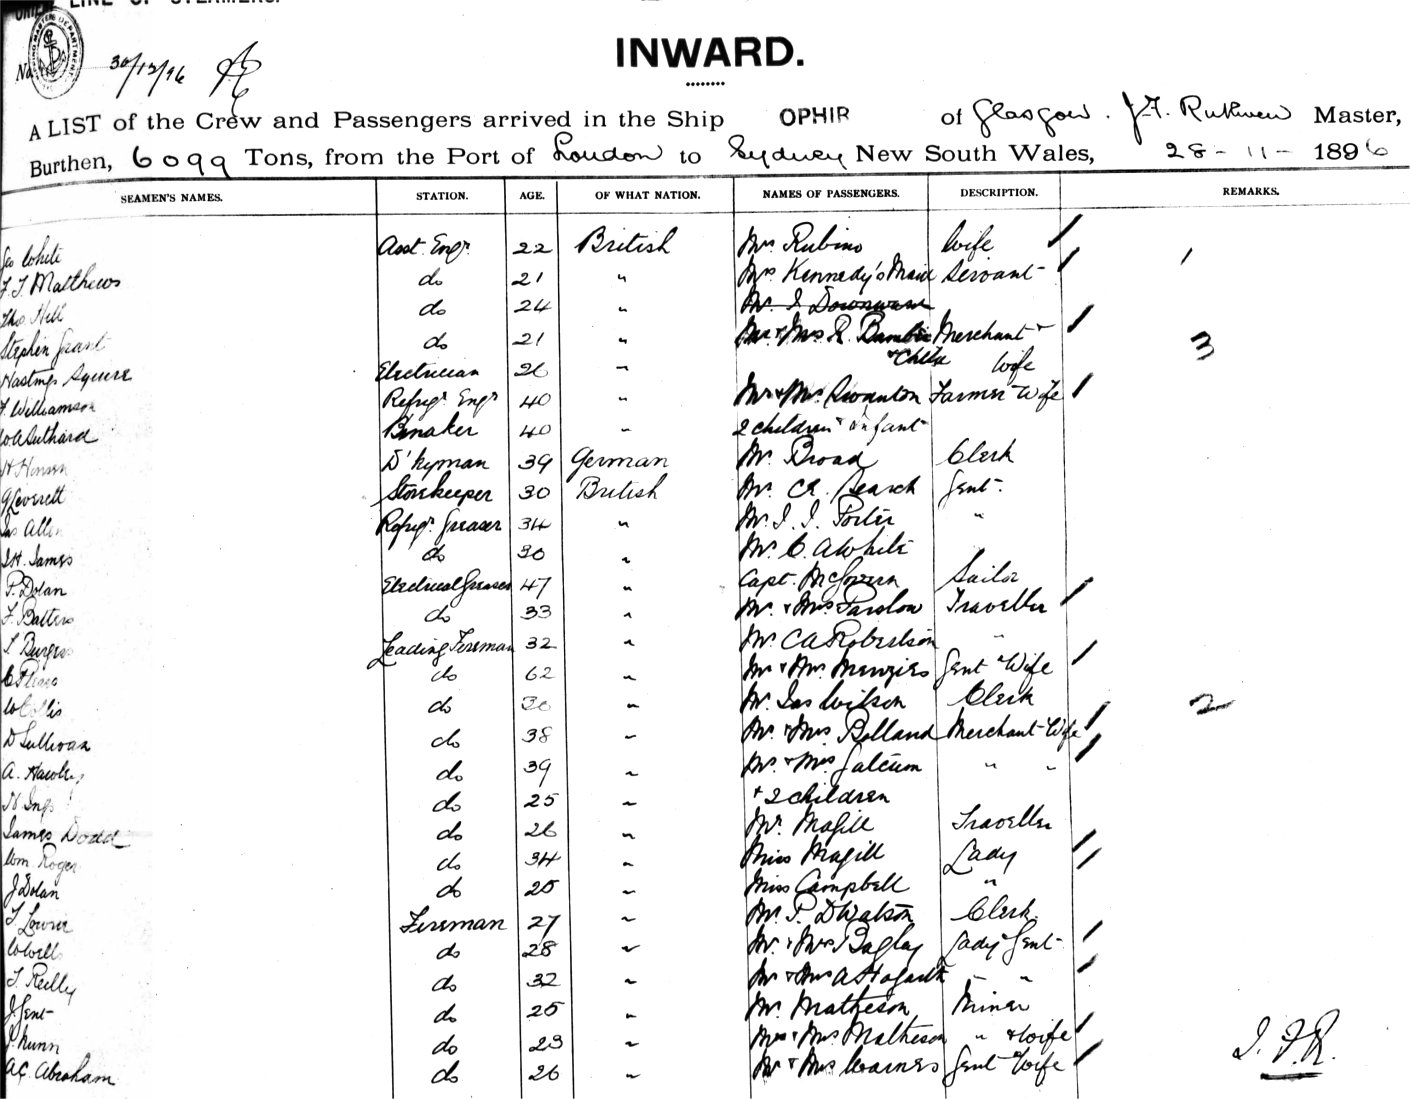 LINE OF STEAMERS.
No. 30/12/96
INWARD.
A LIST of the Crew and Passengers arrived in the Ship OPHIR of Glasgow. J.F. Ruthven Master,
Burthen, 6099 Tons, from the Port of London to Sydney New South Wales, 28-11-1896
SEAMEN'S NAMES. STATION. AGE. OF WHAT NATION. NAMES OF PASSENGERS. DESCRIPTION. REMARKS.
Geo White Asst. Engr. 22 British Mrs Rubino Wife /
F. J. Matthews do 21 " Mrs Kennedy's Maid Servant / 1
Thos Hill do 24 " Mr. I
Stephen Grant do 21 " Mr & Mrs R. Merchant & / 3
& Child Wife
Hastings Squire Electrician 26 "
F. Williamson Refrigr. Engr 40 " Mr & Mrs Swanton Farmer Wife /
W A Suthard 40 " 2 children & infant
H Hensen D'kyman 39 German Mr. Broad Clerk
G Leverett Storekeeper 30 British Mr. Search Gent.
Jas Allen Refrigr. Greaser 34 " Mr. J. J. Porter "
J.H. James do 30 " Mr. C. A White
P. Dolan Electrical Greaser 47 " Capt. McGovern Sailor
F. Batters do 33 " Mr. & Mrs Parslow Traveller /
Burgess Leading Fireman 32 " Mr. C A Robertson "
do 62 " Mr & Mrs Menzies Gent & Wife /
W Collis do 30 " Mr. Jas Wilson Clerk 2
D Sullivan do 38 " Mr. & Mrs Bolland Merchant Wife /
A. do 39 " Mr. & Mrs " " /
do 25 " & 2 children
James Dodd do 26 " Mr. Magill Traveller
Wm Roger do 34 " Miss Magill Lady /
J Dolan do 25 " Miss Campbell " /
T. Fireman 27 " Mr. P. D Watson Clerk.
W Wells do 28 " Mr. & Mrs Bagley Lady & Gent /
T. Reilly do 32 " Mr & Mrs A Hogarth " " /
J. Gent do 25 " Mr. Matheson Miner
J. Nunn do 23 " Mr & Mrs Matheson " & Wife /
A.C. Abraham do 26 " Mr & Mrs Warnes Gent Wife /
J.F.R.